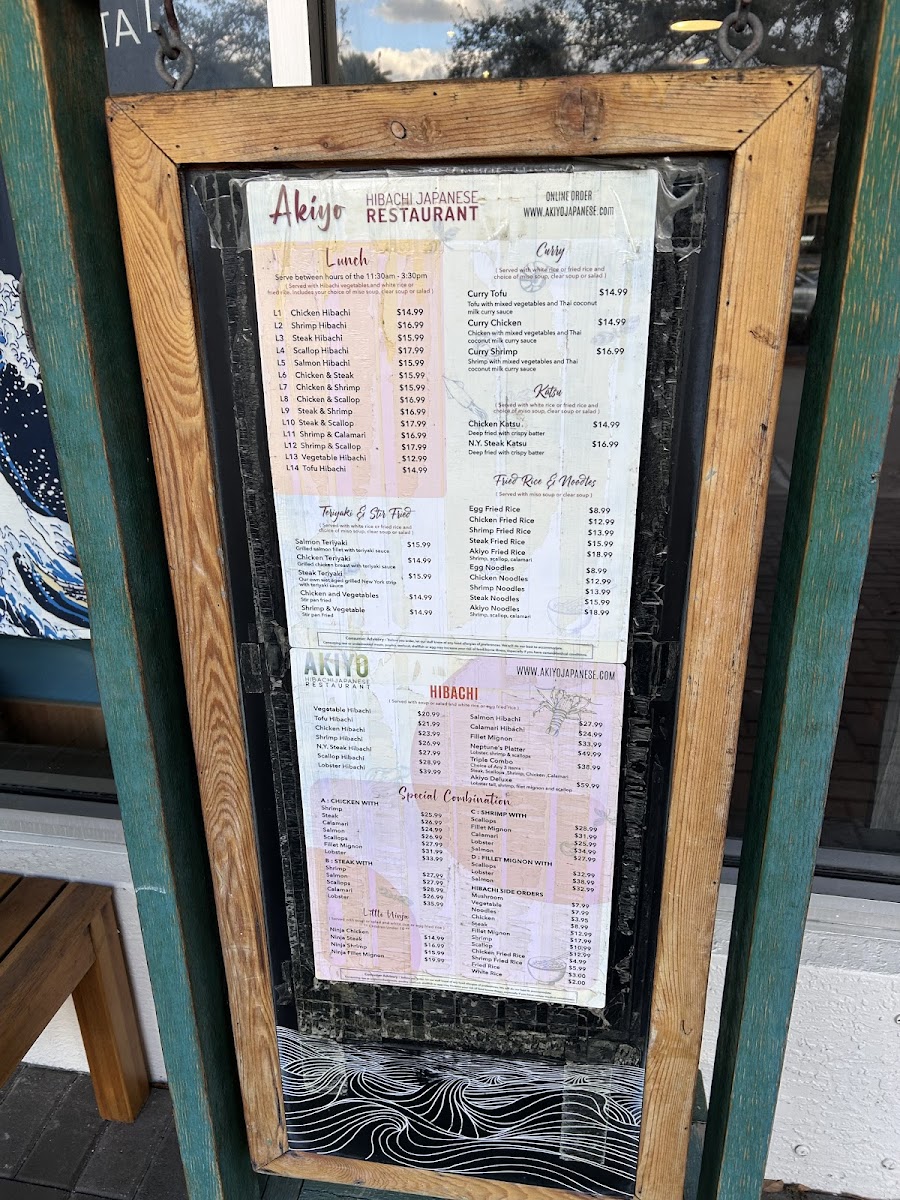 TAL
Akiyo
HIBACHI JAPANESE
RESTAURANT
ONLINE ORDER
WWW.AKIYOJAPANESE.COM
Lunch
Serve between hours of the 11:30am - 3:30pm
( Served with Hibachi vegetables and white rice or
fried rice. Includes your choice of miso soup, clear soup or salad )
L1 Chicken Hibachi $14.99
L2 Shrimp Hibachi $16.99
L3 Steak Hibachi $15.99
L4 Scallop Hibachi $17.99
L5 Salmon Hibachi $15.99
L6 Chicken & Steak $15.99
L7 Chicken & Shrimp $15.99
L8 Chicken & Scallop $16.99
L9 Steak & Shrimp $16.99
L10 Steak & Scallop $17.99
L11 Shrimp & Calamari $16.99
L12 Shrimp & Scallop $17.99
L13 Vegetable Hibachi $12.99
L14 Tofu Hibachi $14.99
Teriyaki & Stir Fried
( Served with white rice or fried rice and
choice of miso soup, clear soup or salad )
Salmon Teriyaki $15.99
Grilled salmon fillet with teriyaki sauce
Chicken Teriyaki $14.99
Grilled chicken breast with teriyaki sauce
Steak Teriyaki $15.99
Our own wet aged grilled New York strip
with teriyaki sauce
Chicken and Vegetables $14.99
Stir pan fried
Shrimp & Vegetable $14.99
Stir pan fried
Curry
( Served with white rice or fried rice and
choice of miso soup, clear soup or salad )
Curry Tofu $14.99
Tofu with mixed vegetables and Thai coconut
milk curry sauce
Curry Chicken $14.99
Chicken with mixed vegetables and Thai
coconut milk curry sauce
Curry Shrimp $16.99
Shrimp with mixed vegetables and Thai
coconut milk curry sauce
Katsu
( Served with white rice or fried rice and
choice of miso soup, clear soup or salad )
Chicken Katsu $14.99
Deep fried with crispy batter
N.Y. Steak Katsu $16.99
Deep fried with crispy batter
Fried Rice & Noodles
( Served with miso soup or clear soup )
Egg Fried Rice $8.99
Chicken Fried Rice $12.99
Shrimp Fried Rice $13.99
Steak Fried Rice $15.99
Akiyo Fried Rice $18.99
Shrimp, scallop, calamari
Egg Noodles $8.99
Chicken Noodles $12.99
Shrimp Noodles $13.99
Steak Noodles $15.99
Akiyo Noodles $18.99
Shrimp, scallop, calamari
AKIYO
HIBACHI JAPANESE
RESTAURANT
WWW.AKIYOJAPANESE.COM
HIBACHI
( Served with soup or salad and white rice or egg fried rice )
Vegetable Hibachi $20.99
Tofu Hibachi $21.99
Chicken Hibachi $23.99
Shrimp Hibachi $26.99
N.Y. Steak Hibachi $27.99
Scallop Hibachi $28.99
Lobster Hibachi $39.99
Salmon Hibachi $27.99
Calamari Hibachi $24.99
Fillet Mignon $33.99
Neptune's Platter $49.99
Lobster, shrimp & scallops
Triple Combo $38.99
Choice of Any 3 Items :
Steak, Scallops, Shrimp, Chicken, Calamari
Akiyo Deluxe $59.99
Lobster tail, shrimp, filet mignon and scallop
Special Combination
A : CHICKEN WITH
Shrimp $25.99
Steak $26.99
Calamari $24.99
Salmon $26.99
Scallops $27.99
Fillet Mignon $31.99
Lobster $33.99
B : STEAK WITH
Shrimp $27.99
Salmon $27.99
Scallops $28.99
Calamari $26.99
Lobster $35.99
C : SHRIMP WITH
Scallops $28.99
Fillet Mignon $31.99
Calamari $25.99
Lobster $34.99
Salmon $27.99
D : FILLET MIGNON WITH
Scallops $32.99
Lobster $38.99
Salmon $32.99
HIBACHI SIDE ORDERS
Mushroom $7.99
Vegetable $7.99
Noodles $3.95
Chicken $8.99
Steak $12.99
Fillet Mignon $17.99
Shrimp $10.99
Scallop $12.99
Chicken Fried Rice $4.99
Shrimp Fried Rice $5.99
Fried Rice $3.00
White Rice $2.00
Little Ninja
Ninja Chicken $14.99
Ninja Steak $16.99
Ninja Shrimp $15.99
Ninja Fillet Mignon $19.99